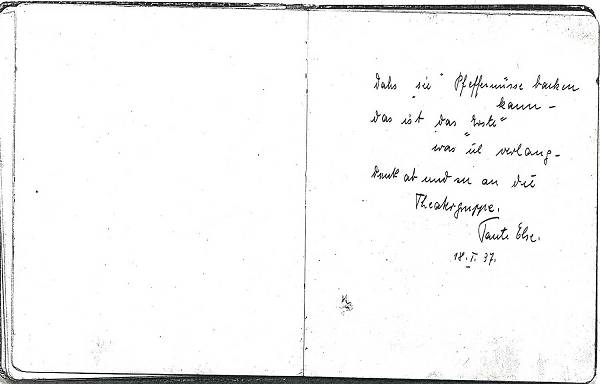 Dahs "sie" Pfeffernüsse backen
kann –
das ist "das Erste"
was ich verlang –
Denk ab und zu an die
Theatergruppe.
Tante Else.
18. I. 37.